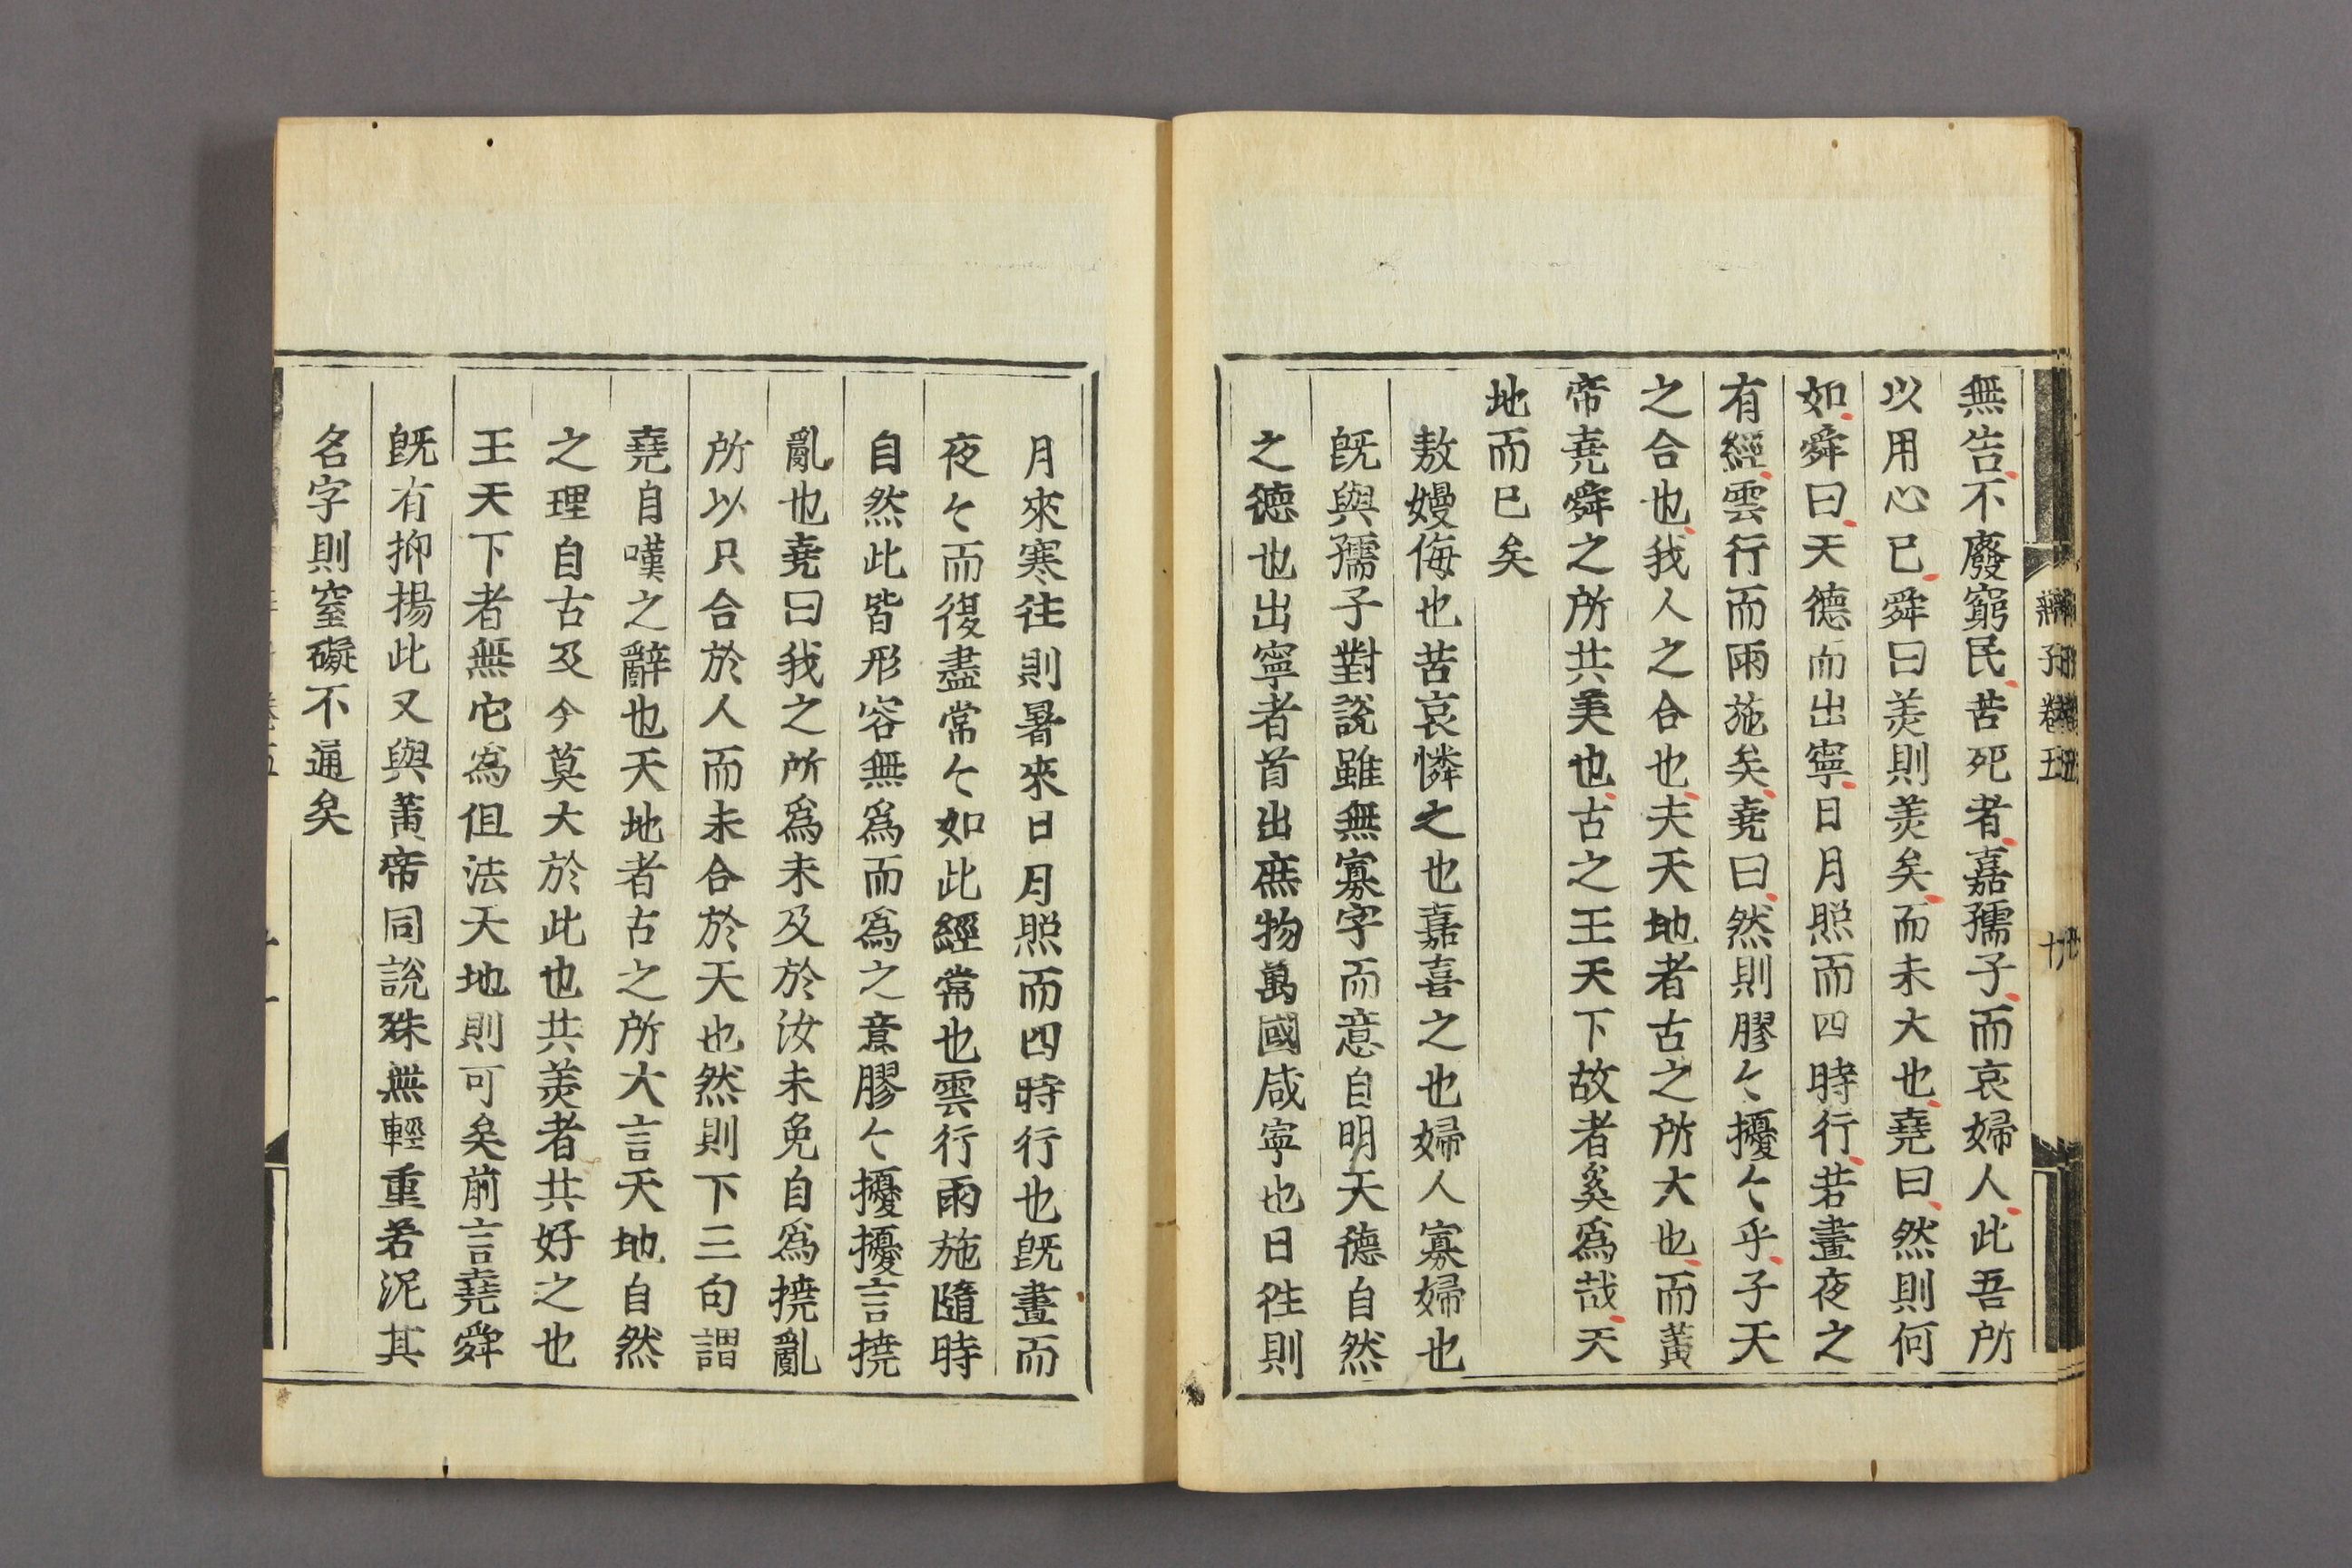 無告不廢窮民苦死者嘉孺子而哀婦人此吾所
以用心已舜曰羙則羙矣而未大也堯曰然則何
如舜曰天德而出寧日月照而四時行若晝夜之
有經雲行而雨施矣堯曰然則膠〻擾〻乎子天
之合也我人之合也夫天地者古之所大也而黃
帝堯舜之所共美也古之王天下故者奚爲哉天
地而已矣
敖嫚侮也苦哀憐之也嘉喜之也婦人寡婦也
旣與孺子對說雖無寡字而意自明天德自然
之德也出寧者首出庶物萬國咸寧也日往則
月來寒往則暑來日月照而四時行也旣晝而
夜〻而復盡常〻如此經常也雲行雨施隨時
自然此皆形容無爲而爲之意膠〻擾擾言撓
亂也堯曰我之所爲未及於汝未免自爲撓亂
所以只合於人而未合於天也然則下三句謂
堯自嘆之辭也天地者古之所大言天地自然
之理自古及今莫大於此也共羙者共好之也
王天下者無它爲但法天地則可矣前言堯舜
旣有抑揚此又與黃帝同說殊無輕重若泥其
名字則窒礙不通矣